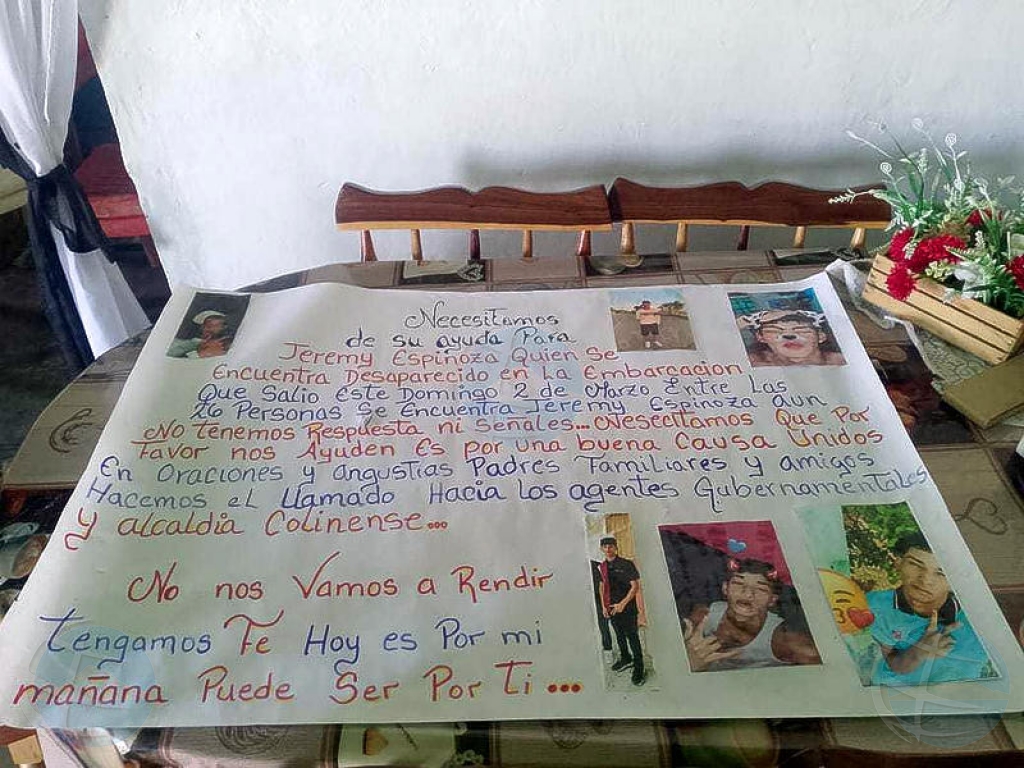 Necesitamos
de su ayuda Para
Jeremy Espinoza Quien Se
Encuentra Desaparecido en La Embarcacion
Que Salio Este Domingo 2 de Marzo Entre Las
26 Personas Se Encuentra Jeremy Espinoza aun
No tenemos Respuesta ni Señales... Nesecitamos Que Por
Favor nos Ayuden Es por una buena Causa Unidos
En Oraciones y angustias Padres Familiares y amigos
Hacemos el LLamado Hacia Los agentes Gubernamentales
y alcaldia Colinense...
No nos Vamos a Rendir
tengamos Fe Hoy es Por mi
mañana Puede Ser Por Ti...